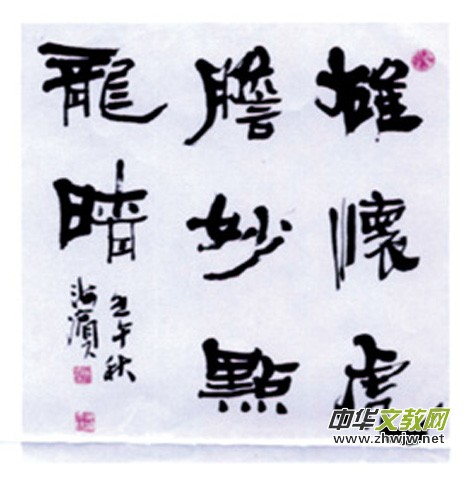 雄懷虎
膽妙點
龍睛
壬午秋
海濱
中华文教网
www.zhwjw.net